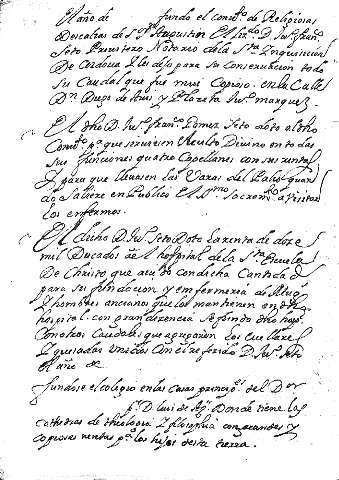 El año de fundo el convto de Religiosas
Descalzas de Sn Agustin El Lizdo D. Jun franco
Soto Presvitero Notario de la Sta Inquisicion
De Cordova I les dejo para su Conservacion todo
su Caudal que fue mui Copioso. en la Calle
Dn Diego de Arias y Plazeta Jun marquez.
El dho D. Jun franco Gomez Soto doto al dho
Convto pa que sirviesen el culto Divino en todas
sus funciones quatro Capellanes con sus rentas
I para que llevasen las Varas del Palio quan
do Saliere en Publico El Smo Sacramto a Visitar
los enfermos.
El dicho D. Jun Soto Doto la renta de doze
mil Ducados a el hospital de la Sta Escuela
De Christo que con dicha Cantidad
para su fundacion y enfermeria de
I hombres ancianos que los mantienen en dho
hospital. con gran decencia dho hospl
Con otros Caudales que agregaron los
I quesados Unidos Con el referido D. Jun Soto
El año de
fundose el colegio en las casas prinzips del Dor
Dn D. Luis de Donde tiene las
cathedras de theologia I filosophia con grandes y
copiosas rentas pa los hijos desta tierra.